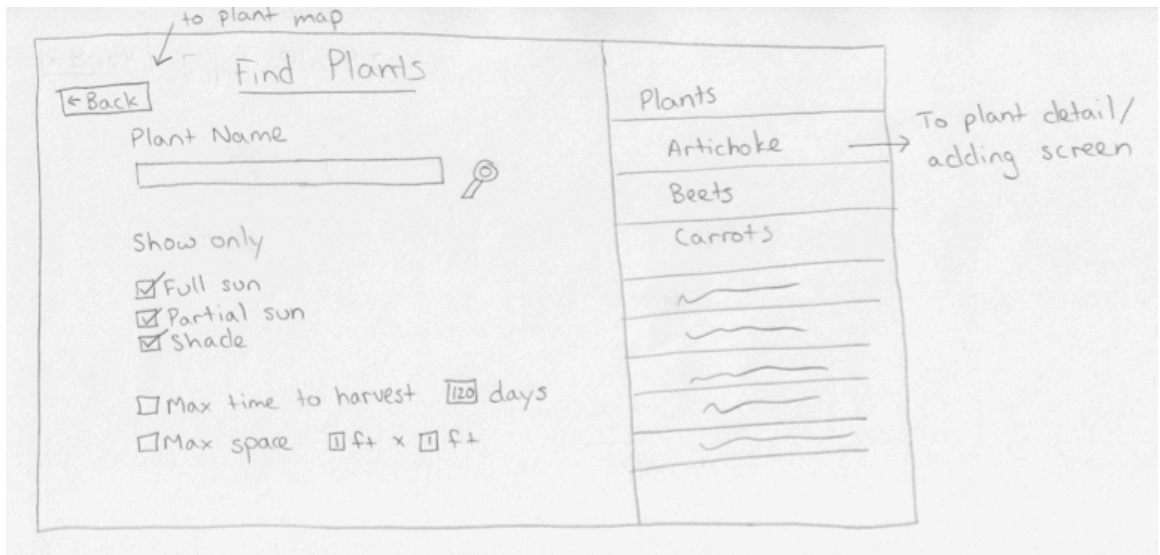 to plant map
Find Plants
←Back
Plant Name
Show only
Full sun
Partial sun
Shade
Max time to harvest 120 days
Max space 1 ft x 1 ft
Plants
Artichoke
Beets
Carrots
To plant detail/
adding screen